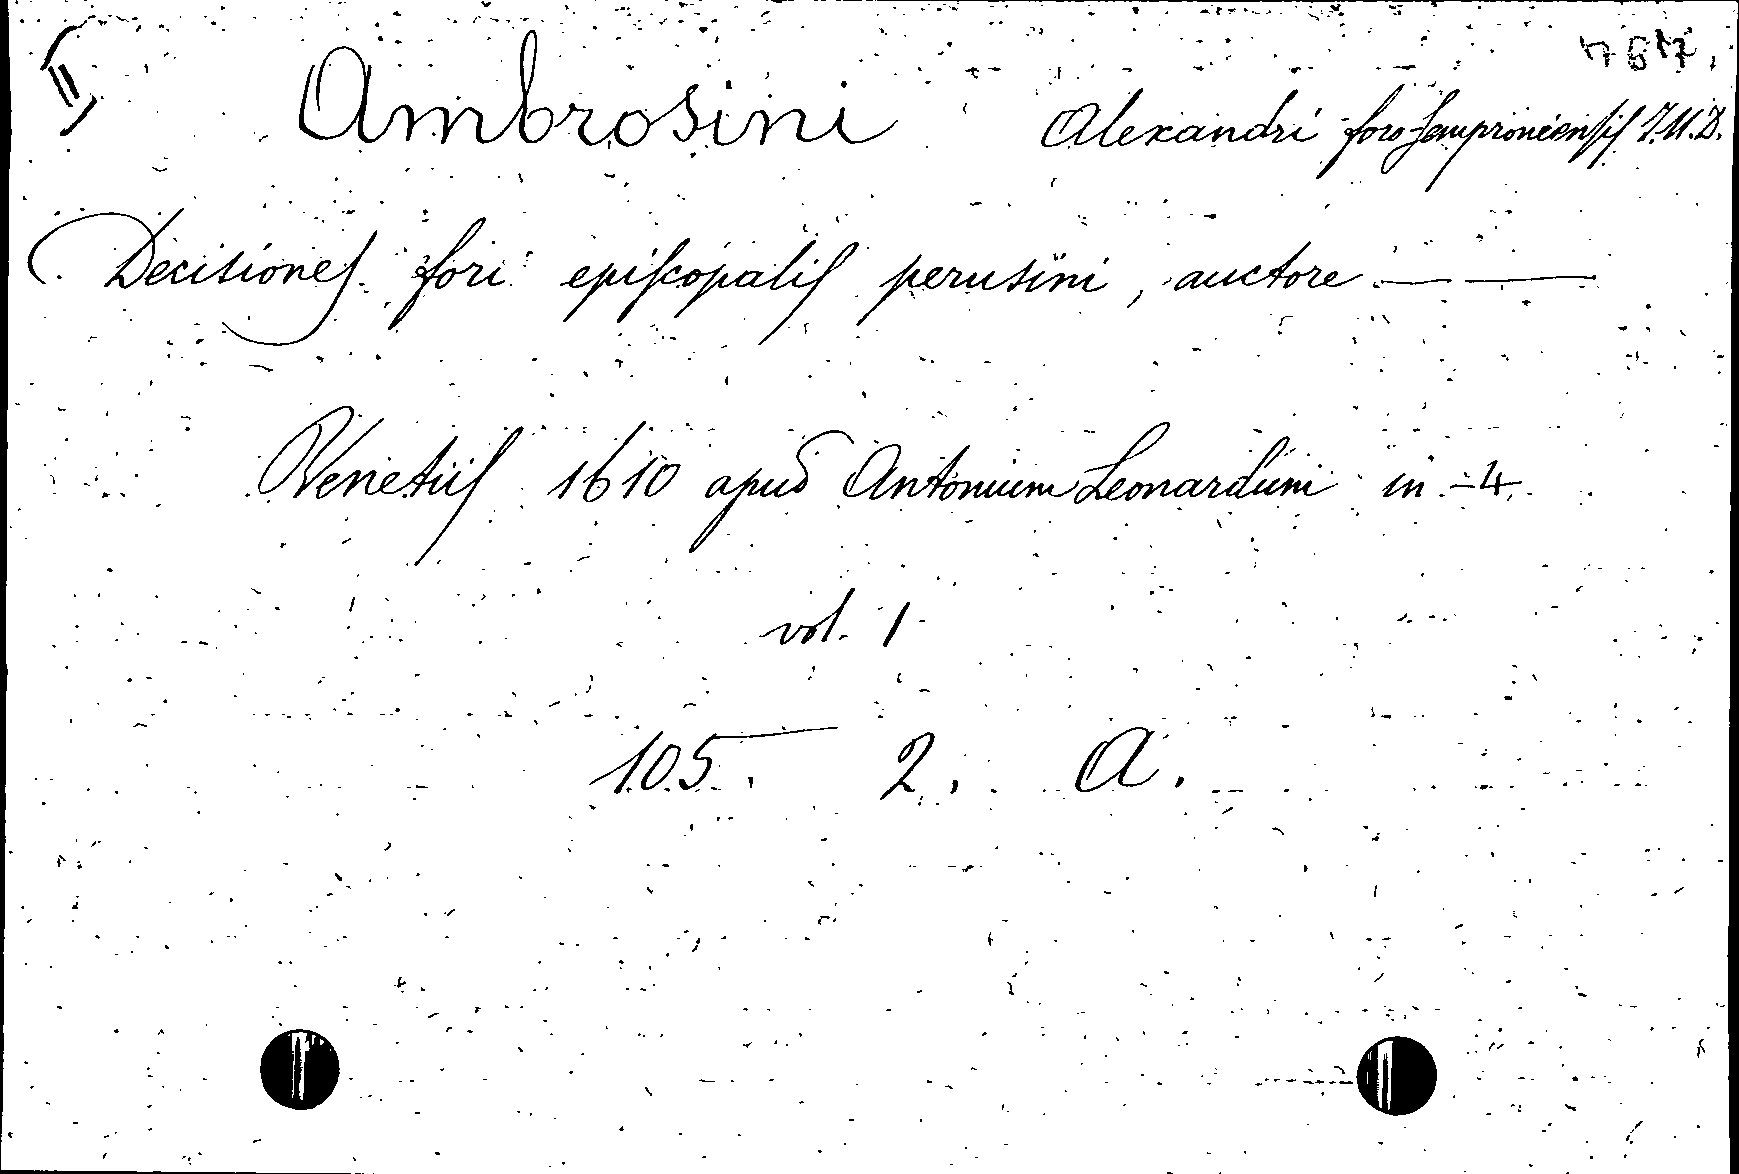 7617.
Ambrosini Alexandri forosemproniensis I.U.D.
Decisiones fori episcopalis perusini, auctore — —
Venetiis 1610 apud Antonium Leonardum in -4
vol. 1
105. 2. A.